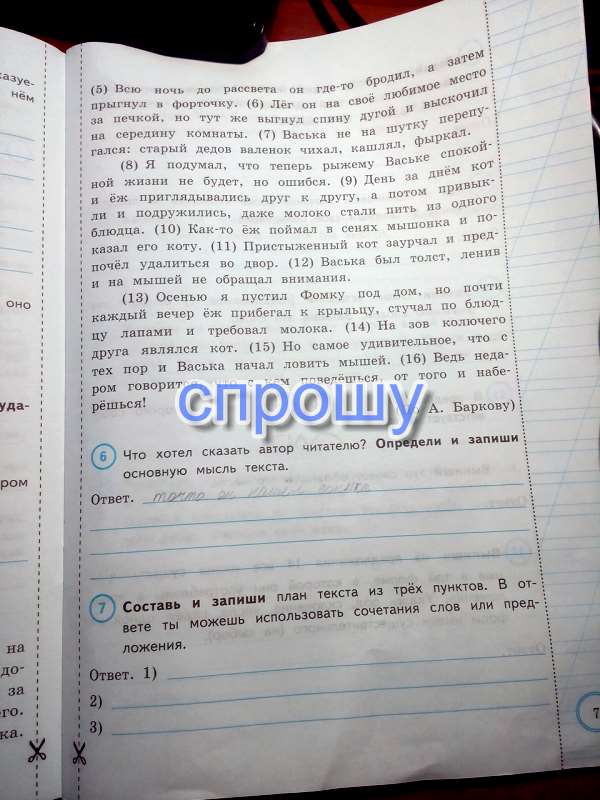 казуе-
нём
оно
уда-
ром
на
до-
за
его.
ка.
(5) Всю ночь до рассвета он где-то бродил, а затем
прыгнул в форточку. (6) Лёг он на своё любимое место
за печкой, но тут же выгнул спину дугой и выскочил
на середину комнаты. (7) Васька не на шутку перепу-
гался: старый дедов валенок чихал, кашлял, фыркал.
(8) Я подумал, что теперь рыжему Ваське спокой-
ной жизни не будет, но ошибся. (9) День за днём кот
и ёж приглядывались друг к другу, а потом привык-
ли и подружились, даже молоко стали пить из одного
блюдца. (10) Как-то ёж поймал в сенях мышонка и по-
казал его коту. (11) Пристыженный кот заурчал и пред-
почёл удалиться во двор. (12) Васька был толст, ленив
и на мышей не обращал внимания.
(13) Осенью я пустил Фомку под дом, но почти
каждый вечер ёж прибегал к крыльцу, стучал по блюд-
цу лапами и требовал молока. (14) На зов колючего
друга являлся кот. (15) Но самое удивительное, что с
тех пор и Васька начал ловить мышей. (16) Ведь неда-
ром говорится, поведёшься, от того и набе-
рёшься!
спрошу
А. Баркову)
6 Что хотел сказать автор читателю? Определи и запиши
основную мысль текста.
Ответ.
7 Составь и запиши план текста из трёх пунктов. В от-
вете ты можешь использовать сочетания слов или пред-
ложения.
Ответ. 1)
2)
3)
7